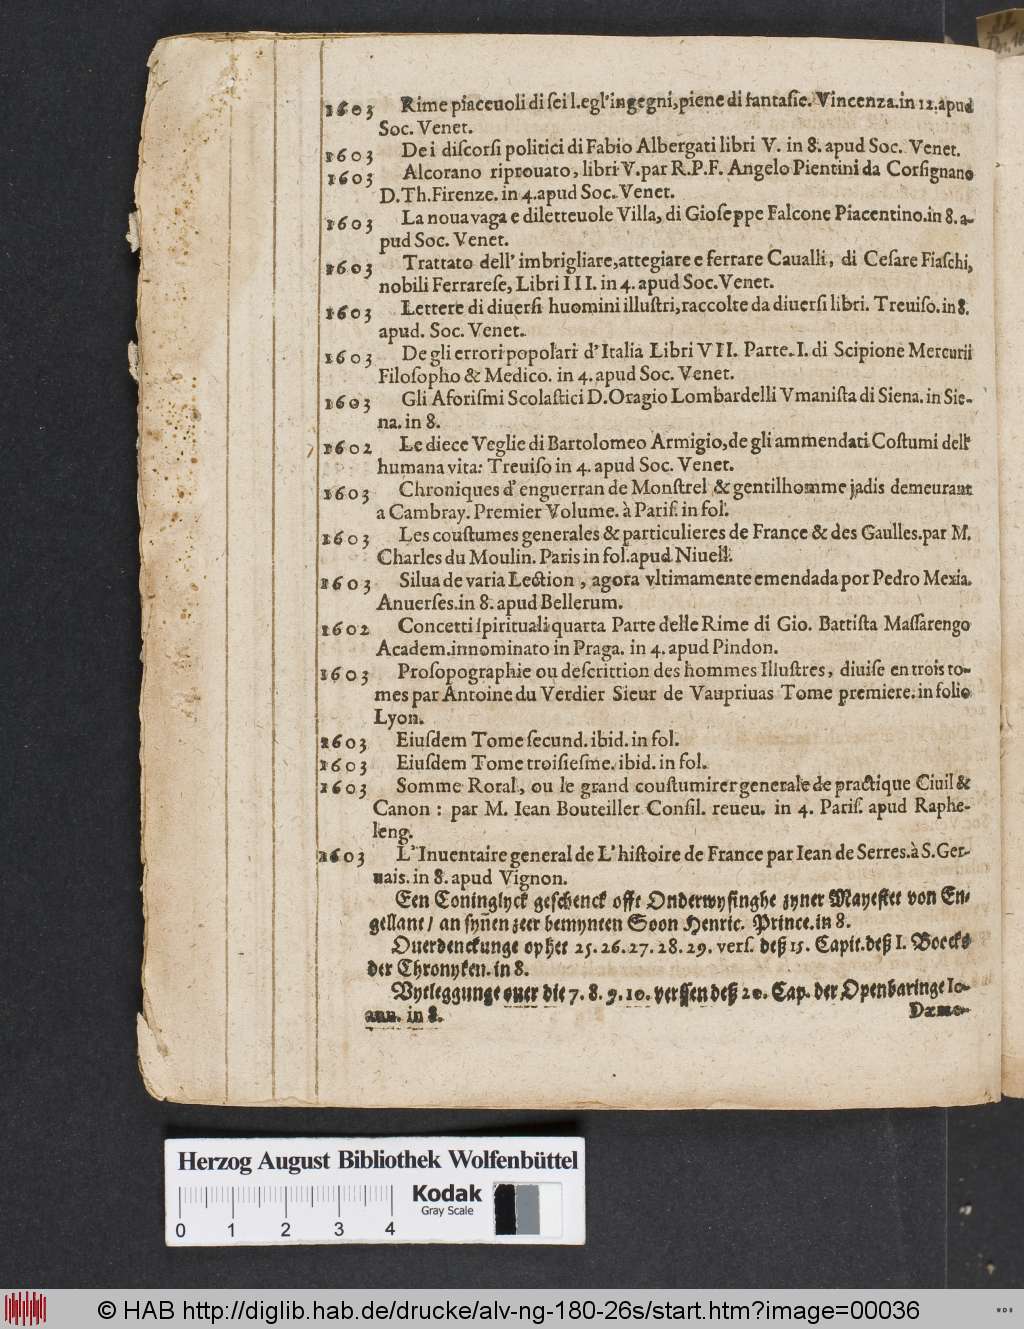 1603 Rime piaceuoli di sei l.egl'ingegni, piene di fantasie. Vincenza. in 12. apud
Soc. Venet.
1603 De i discorsi politici di Fabio Albergati libri V. in 8. apud Soc. Venet.
1603 Alcorano riprouato, libri V. par R.P.F. Angelo Pientini da Corsignano
D. Th. Firenze. in 4. apud Soc. Venet.
1603 La noua vaga e diletteuole Villa, di Gioseppe Falcone Piacentino. in 8. a-
pud Soc. Venet.
1603 Trattato dell' imbrigliare, attegiare e ferrare Caualli, di Cesare Fiaschi,
nobili Ferrarese, Libri III. in 4. apud Soc. Venet.
1603 Lettere di diuersi huomini illustri, raccolte da diuersi libri. Treuiso. in 8.
apud. Soc. Venet.
1603 De gli errori popolari d'Italia Libri VII. Parte. I. di Scipione Mercurii
Filosopho & Medico. in 4. apud Soc. Venet.
1603 Gli Aforismi Scolastici D. Oragio Lombardelli Vmanista di Siena. in Sie-
na. in 8.
1602 Le diece Veglie di Bartolomeo Armigio, de gli ammendati Costumi dell'
humana vita: Treuiso in 4. apud Soc. Venet.
1603 Chroniques d'enguerran de Monstrel & gentilhomme jadis demeurant
a Cambray. Premier Volume. à Paris. in fol.
1603 Les coustumes generales & particulieres de France & des Gaulles. par M.
Charles du Moulin. Paris in fol. apud Niuell.
1603 Silua de varia Lection, agora vltimamente emendada por Pedro Mexia.
Anuerses. in 8. apud Bellerum.
1602 Concetti spirituali quarta Parte delle Rime di Gio. Battista Massarengo
Academ. innominato in Praga. in 4. apud Pindon.
1603 Prosopographie ou descrittion des hommes Illustres, diuise en trois to-
mes par Antoine du Verdier Sieur de Vaupriuas Tome premiere. in folio
Lyon.
1603 Eiusdem Tome secund. ibid. in fol.
1603 Eiusdem Tome troisiesme. ibid. in fol.
1603 Somme Roral, ou le grand coustumirer generale de practique Ciuil &
Canon: par M. Iean Bouteiller Consil. reueu. in 4. Paris. apud Raphe-
leng.
1603 L'Inuentaire general de L'histoire de France par Iean de Serres. à S. Ger-
uais. in 8. apud Vignon.
Een Coninglyck geschenck offt Onderwysinghe zyner Mayestet von En-
gellant / an synen zeer bemynten Soon Henric. Prince. in 8.
Ouerdenckunge op het 25. 26. 27. 28. 29. vers. deß 15. Capit. deß I. Boecks
der Chronyken. in 8.
Vytleggunge ouer die 7. 8. 9. 10. verssen deß 20. Cap. der Openbaringe Io-
ann. in 8.
Dæmo-
Herzog August Bibliothek Wolfenbüttel
Kodak
Gray Scale
0 1 2 3 4
© HAB http://diglib.hab.de/drucke/alv-ng-180-26s/start.htm?image=00036